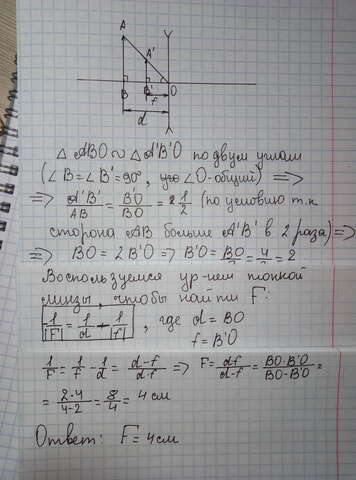 A
A'
B
B'
O
f
d
△ ABO ∾ △ A'B'O по двум углам
(∠B = ∠B' = 90°, ∠O - общий) ⇒
⇒ A'B'/AB = B'O/BO = 1/2 (по условию т.к.
сторона AB больше A'B' в 2 раза) ⇒
⇒ BO = 2B'O ⇒ B'O = BO/2 = 4/2 = 2
Воспользуемся ур-нем тонкой
линзы, чтобы найти F:
1/|F| = 1/d - 1/|f| , где d = BO
f = B'O
1/F = 1/f - 1/d = d-f/d·f ⇒ F = df/d-f = BO·B'O/BO-B'O =
= 2·4/4-2 = 8/4 = 4 см
Ответ: F = 4 см